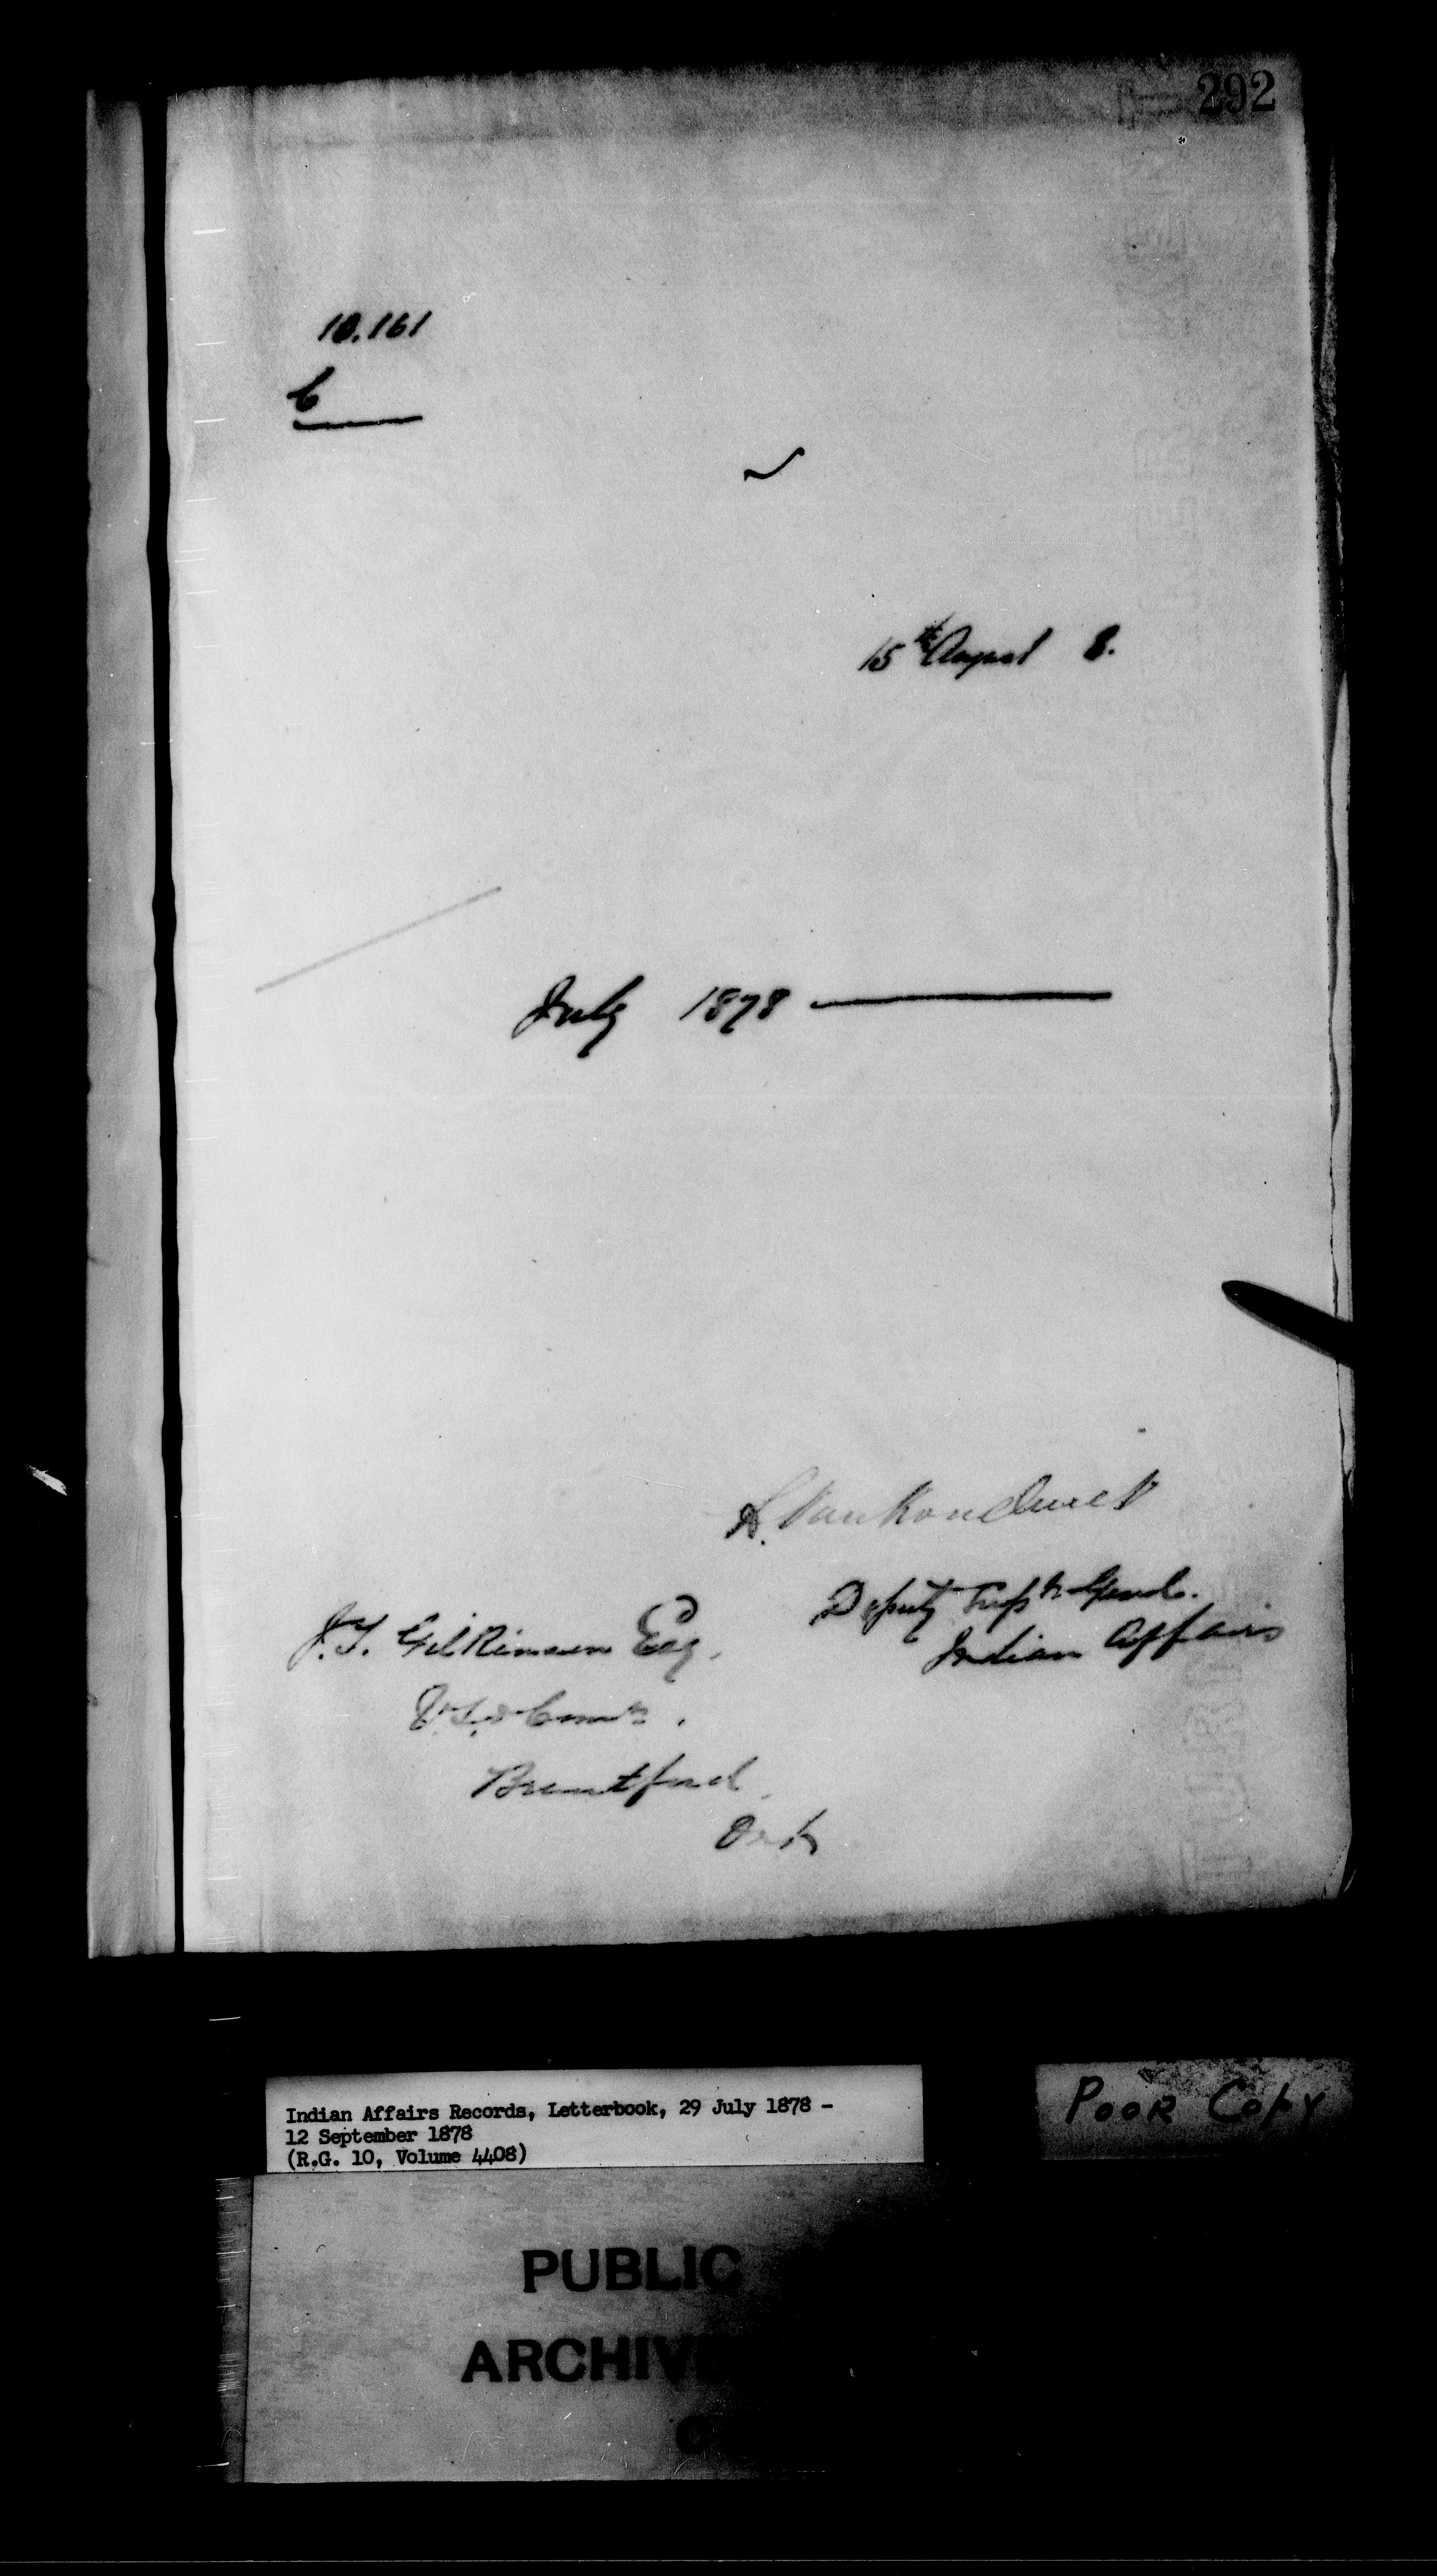 292
10.161
C
15th August 8.
July 1878
L. Vankoughnet
Deputy Supt Genl.
Indian Affairs
J.T. Gilkinson Esq.
V.S. & Comr.
Brantford
Ont
Indian Affairs Records, Letterbook, 29 July 1878 -
12 September 1878
(R.G. 10, Volume 4408)
POOR COPY
PUBLIC
ARCHIV